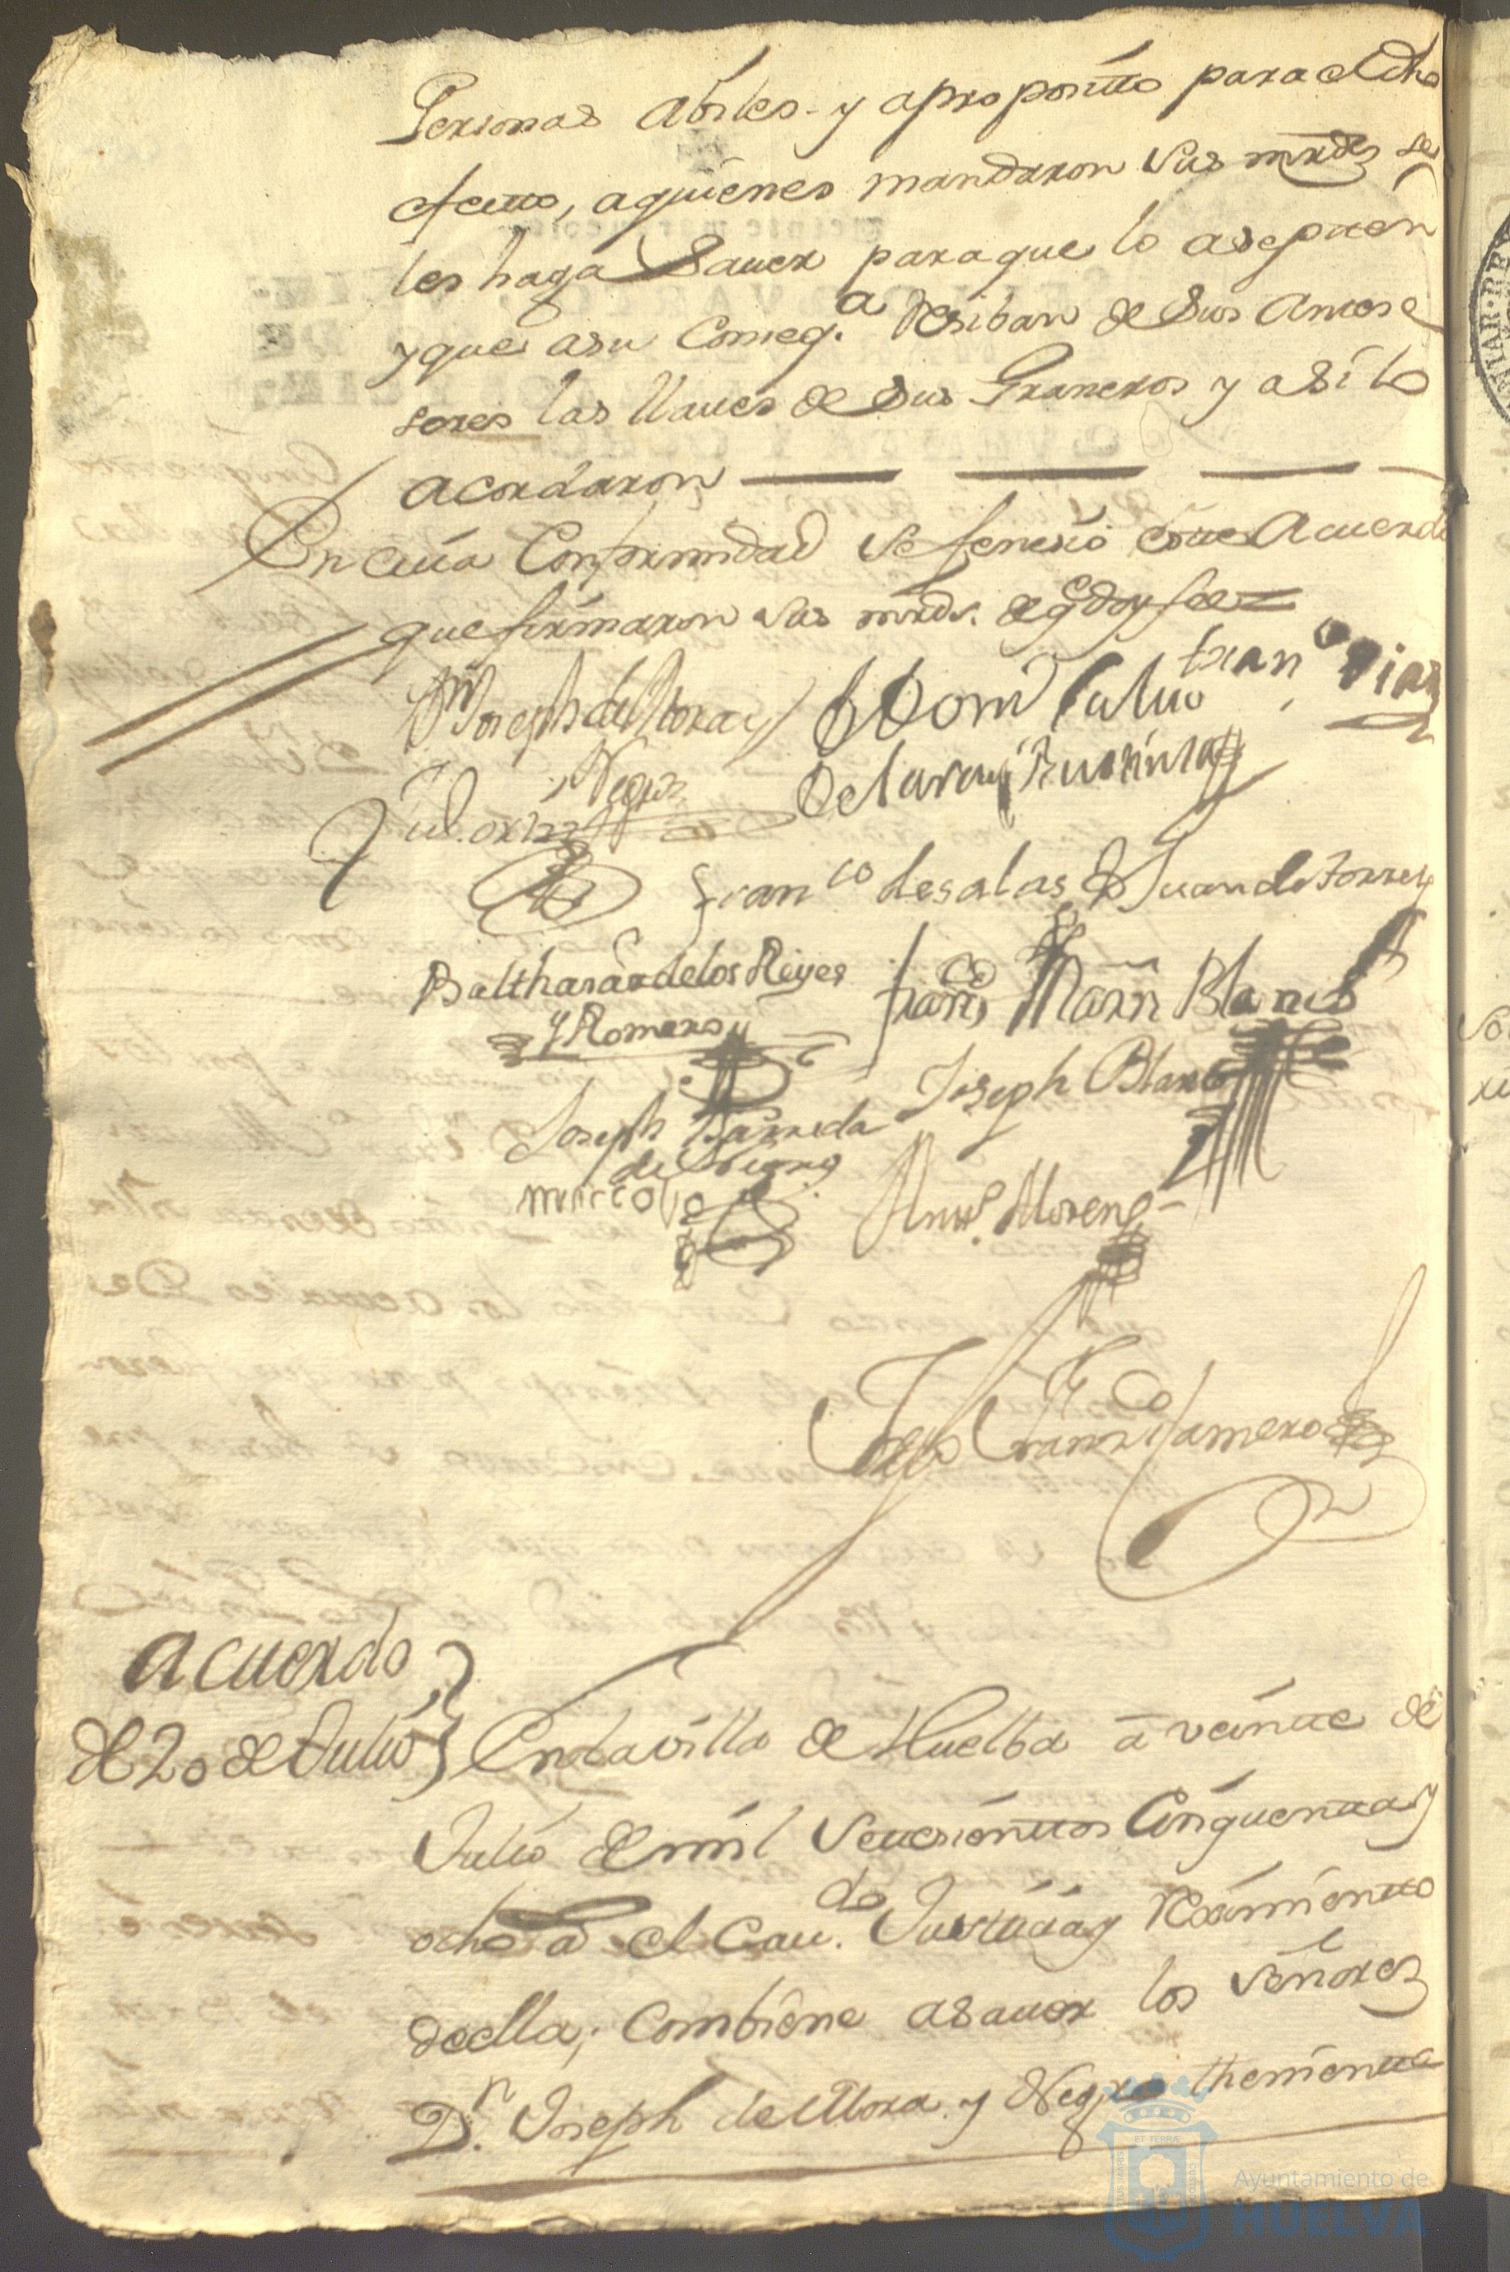 Personas abiles y aproposítto para el dho
efectto, aquienes mandaron sus mrds se
les haga Sauer para que lo asepten
y que asu Conseq.a resiban de Sus Antese
sores las llaues de sus Graneros y asi lo
acordaron
En cuia Conformidad Se fenesió este Acuerdo
que firmaron sus mrds. de q doy fee
Dn Joseph de Mora y Negro
Dom Caluo
Fran.co Diaz
Franco de salas
Juan de torres
Balthasar de los Reyes
y Romero
Franco Marn Blanco
Joseph Barreda
Joseph Blanco
Antt.o Moreno
Diego Franco Romero
acuerdo
de 20 de Julio
En la villa de Huelba a veinte de
Julio de mil Settesienttos Cinquenta y
ocho a el Cau.do Justisia y reximientto
de ella; Combiene asauer los Señores
Dn. Joseph de Mora y Negro theniente
Ayuntamiento de
HUELVA